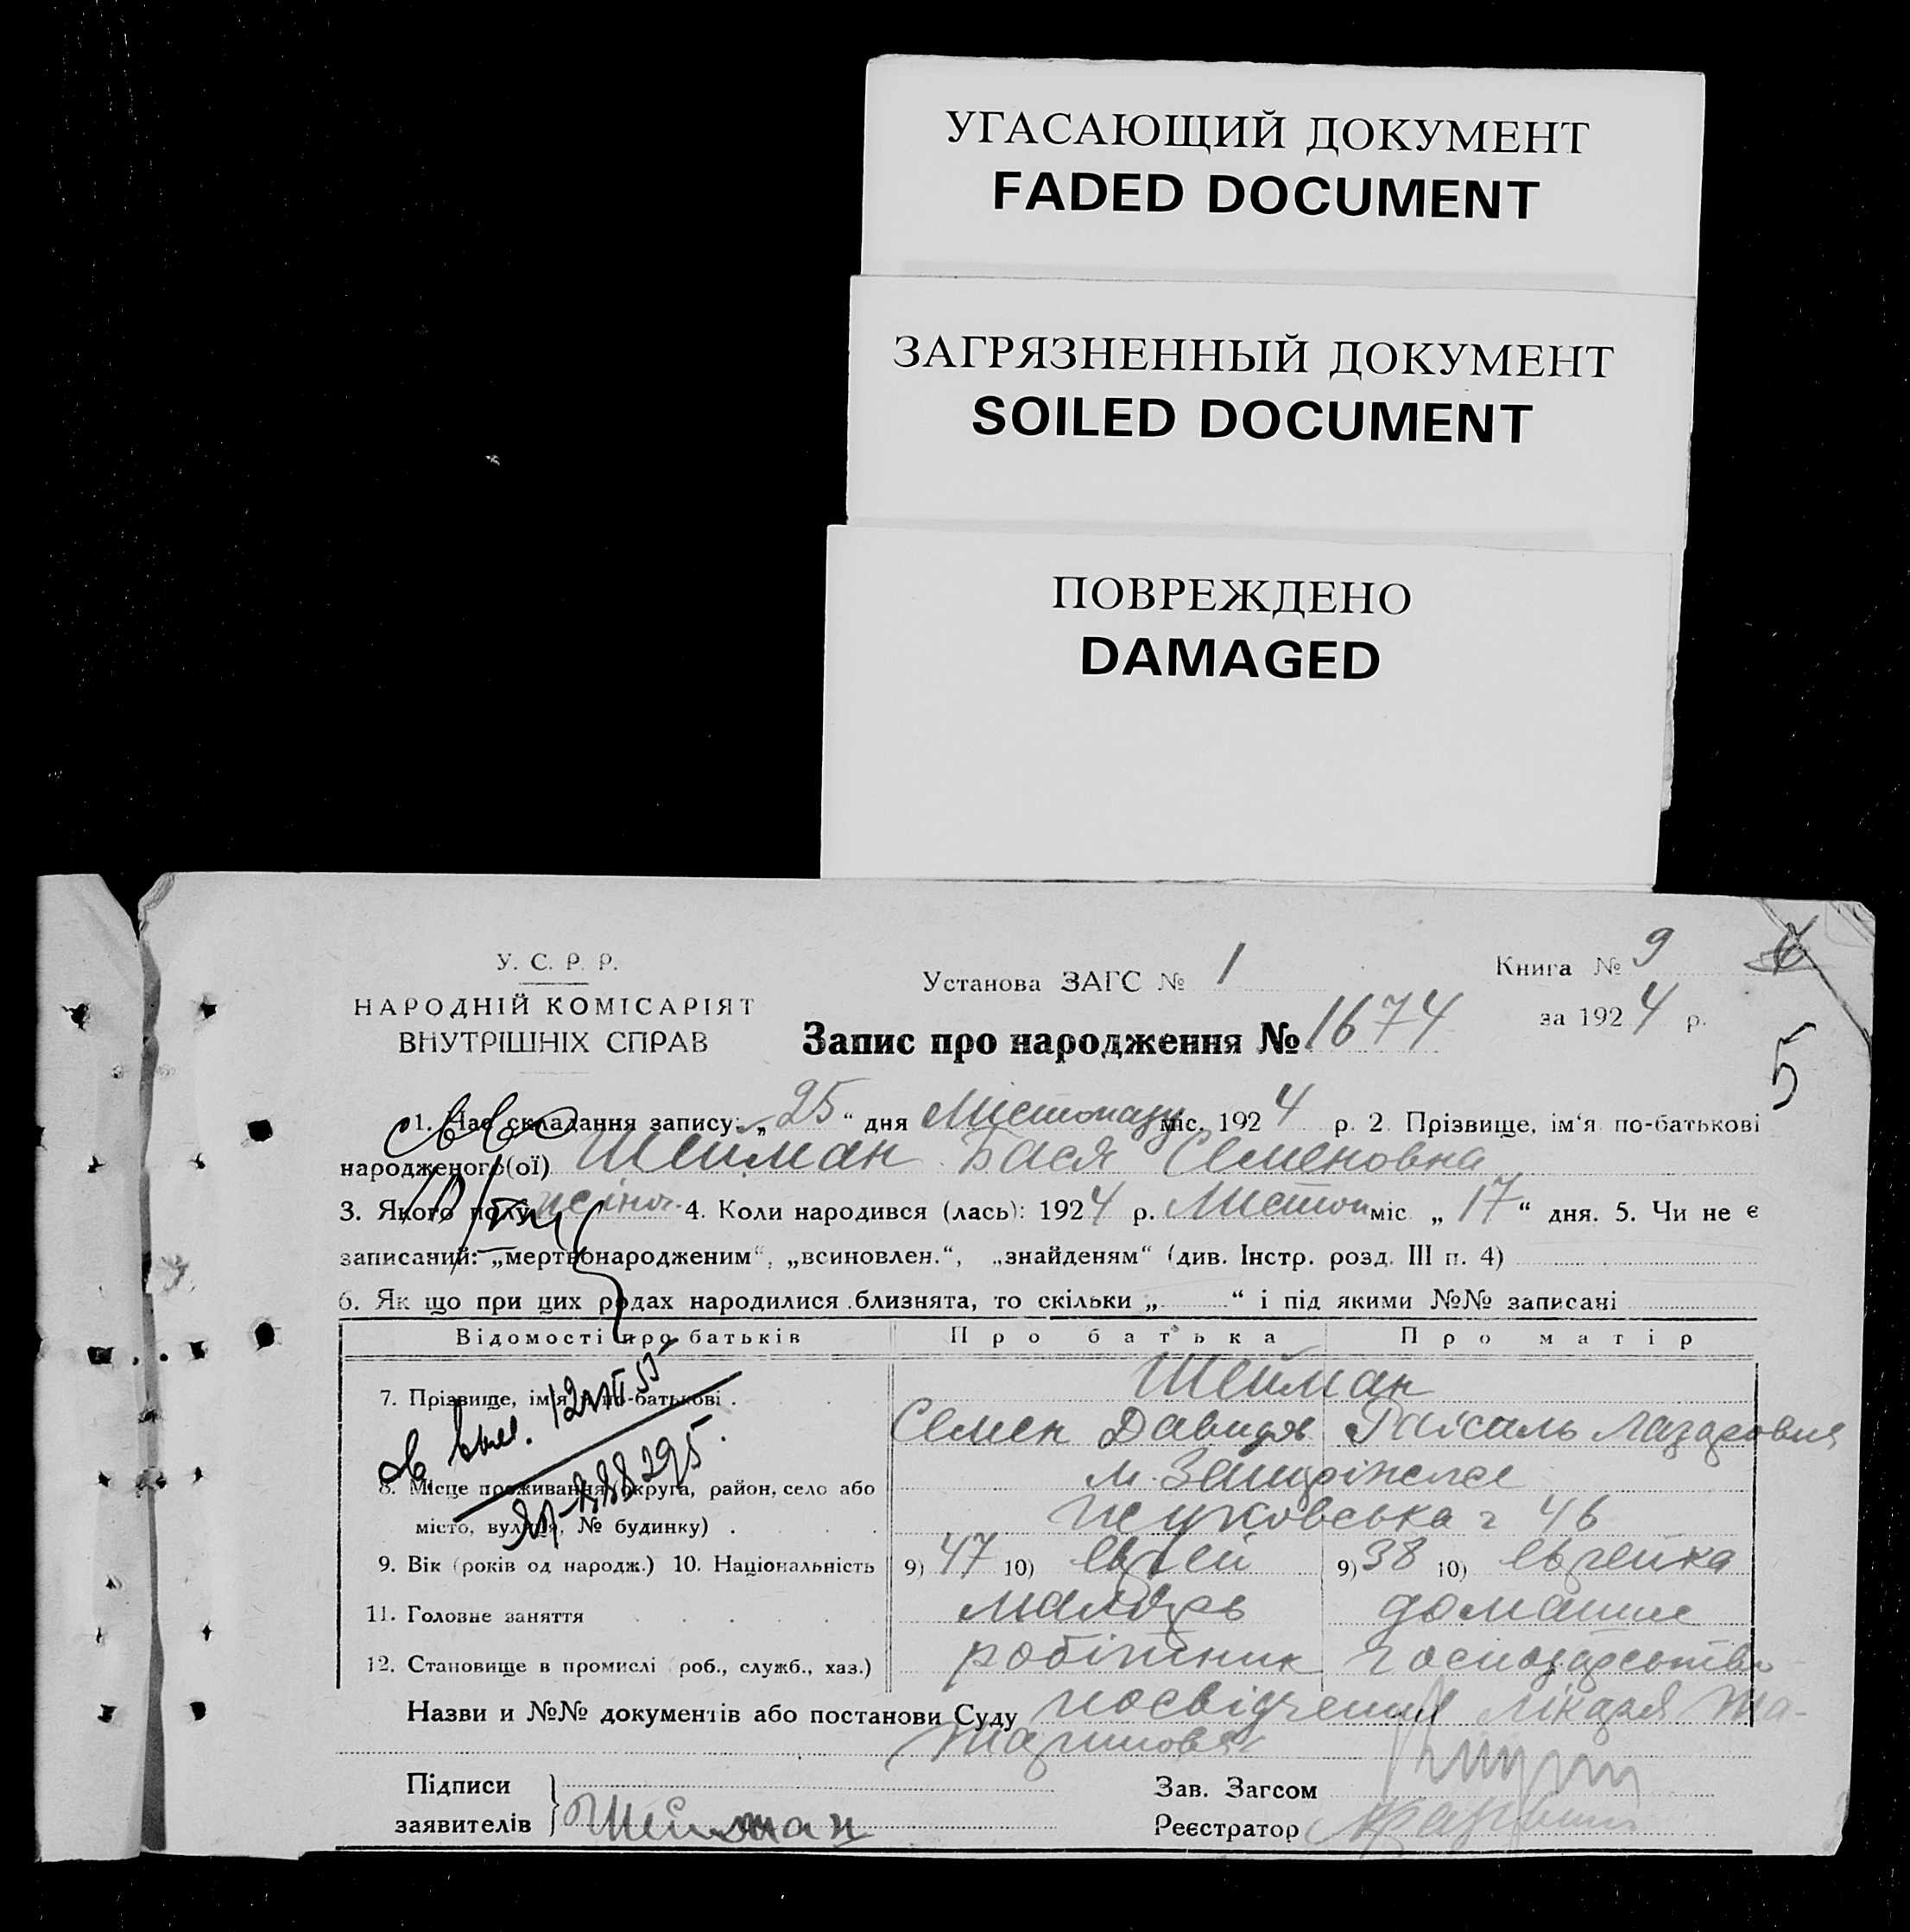 УГАСАЮЩИЙ ДОКУМЕНТ
FADED DOCUMENT
ЗАГРЯЗНЕННЫЙ ДОКУМЕНТ
SOILED DOCUMENT
ПОВРЕЖДЕНО
DAMAGED
У. С. Р. Р.
НАРОДНІЙ КОМІСАРІЯТ
ВНУТРІШНІХ СПРАВ
Установа ЗАГС № 1
Книга № 9
за 1924 р.
5
Запис про народження № 1674
1. Час складання запису: „25“ дня Листопаду міс. 1924 р. 2. Прізвище, ім‘я по-батькові
народженого(ої) Шейман Бася Семеновна
3. Якого полу жіноч. 4. Коли народився (лась): 1924 р. Листоп міс. „17“ дня. 5. Чи не є
записаний: „мертвонародженим“, „всиновлен.“, „знайденям“ (див. Інстр. розд. III п. 4)
6. Як що при цих родах народилися близнята, то скільки „ “ і під якими №№ записані
Відомості про батьків Про батька Про матір
7. Прізвище, ім‘я по-батькові . Шейман
Семен Давидов Лазаровна
8. Місце проживання округа, район, село або м. Запоріжжя
місто, вулиця, № будинку) . Жуковська 46
9. Вік (років од народж.) 10. Національність 9) 47 10) еврей 9) 38 10) еврейка
11. Головне заняття маляр домашнє
12. Становище в промислі роб., служб., хаз.) робітник господарство
Назви и №№ документів або постанови Суду посвідчення лікаря
Підписи
заявителів Шейман
Зав. Загсом
Реєстратор